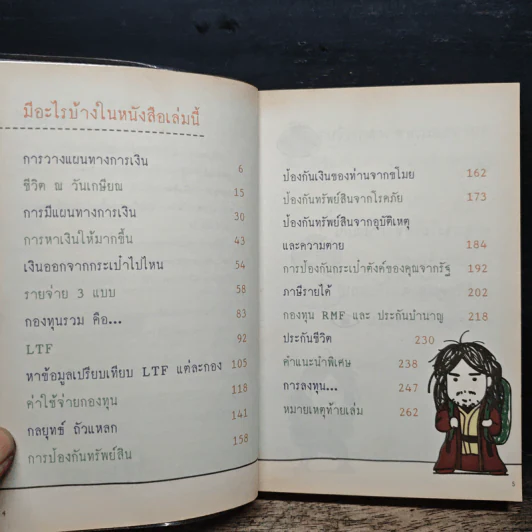 มีอะไรบ้างในหนังสือเล่มนี้
การวางแผนทางการเงิน 6
ชีวิต ณ วันเกษียณ 15
การมีแผนทางการเงิน 30
การหาเงินให้มากขึ้น 43
เงินออกจากกระเป๋าไปไหน 54
รายจ่าย 3 แบบ 58
กองทุนรวม คือ... 83
LTF 92
หาข้อมูลเปรียบเทียบ LTF แต่ละกอง 105
ค่าใช้จ่ายกองทุน 118
กลยุทธ์ ถัวแหลก 141
การป้องกันทรัพย์สิน 158
4
ป้องกันเงินของท่านจากขโมย 162
ป้องกันทรัพย์สินจากโรคภัย 173
ป้องกันทรัพย์สินจากอุบัติเหตุ
และความตาย 184
การป้องกันกระเป๋าตังค์ของคุณจากรัฐ 192
ภาษีรายได้ 202
กองทุน RMF และ ประกันบำนาญ 218
ประกันชีวิต 230
คำแนะนำพิเศษ 238
การลงทุน... 247
หมายเหตุท้ายเล่ม 262
5